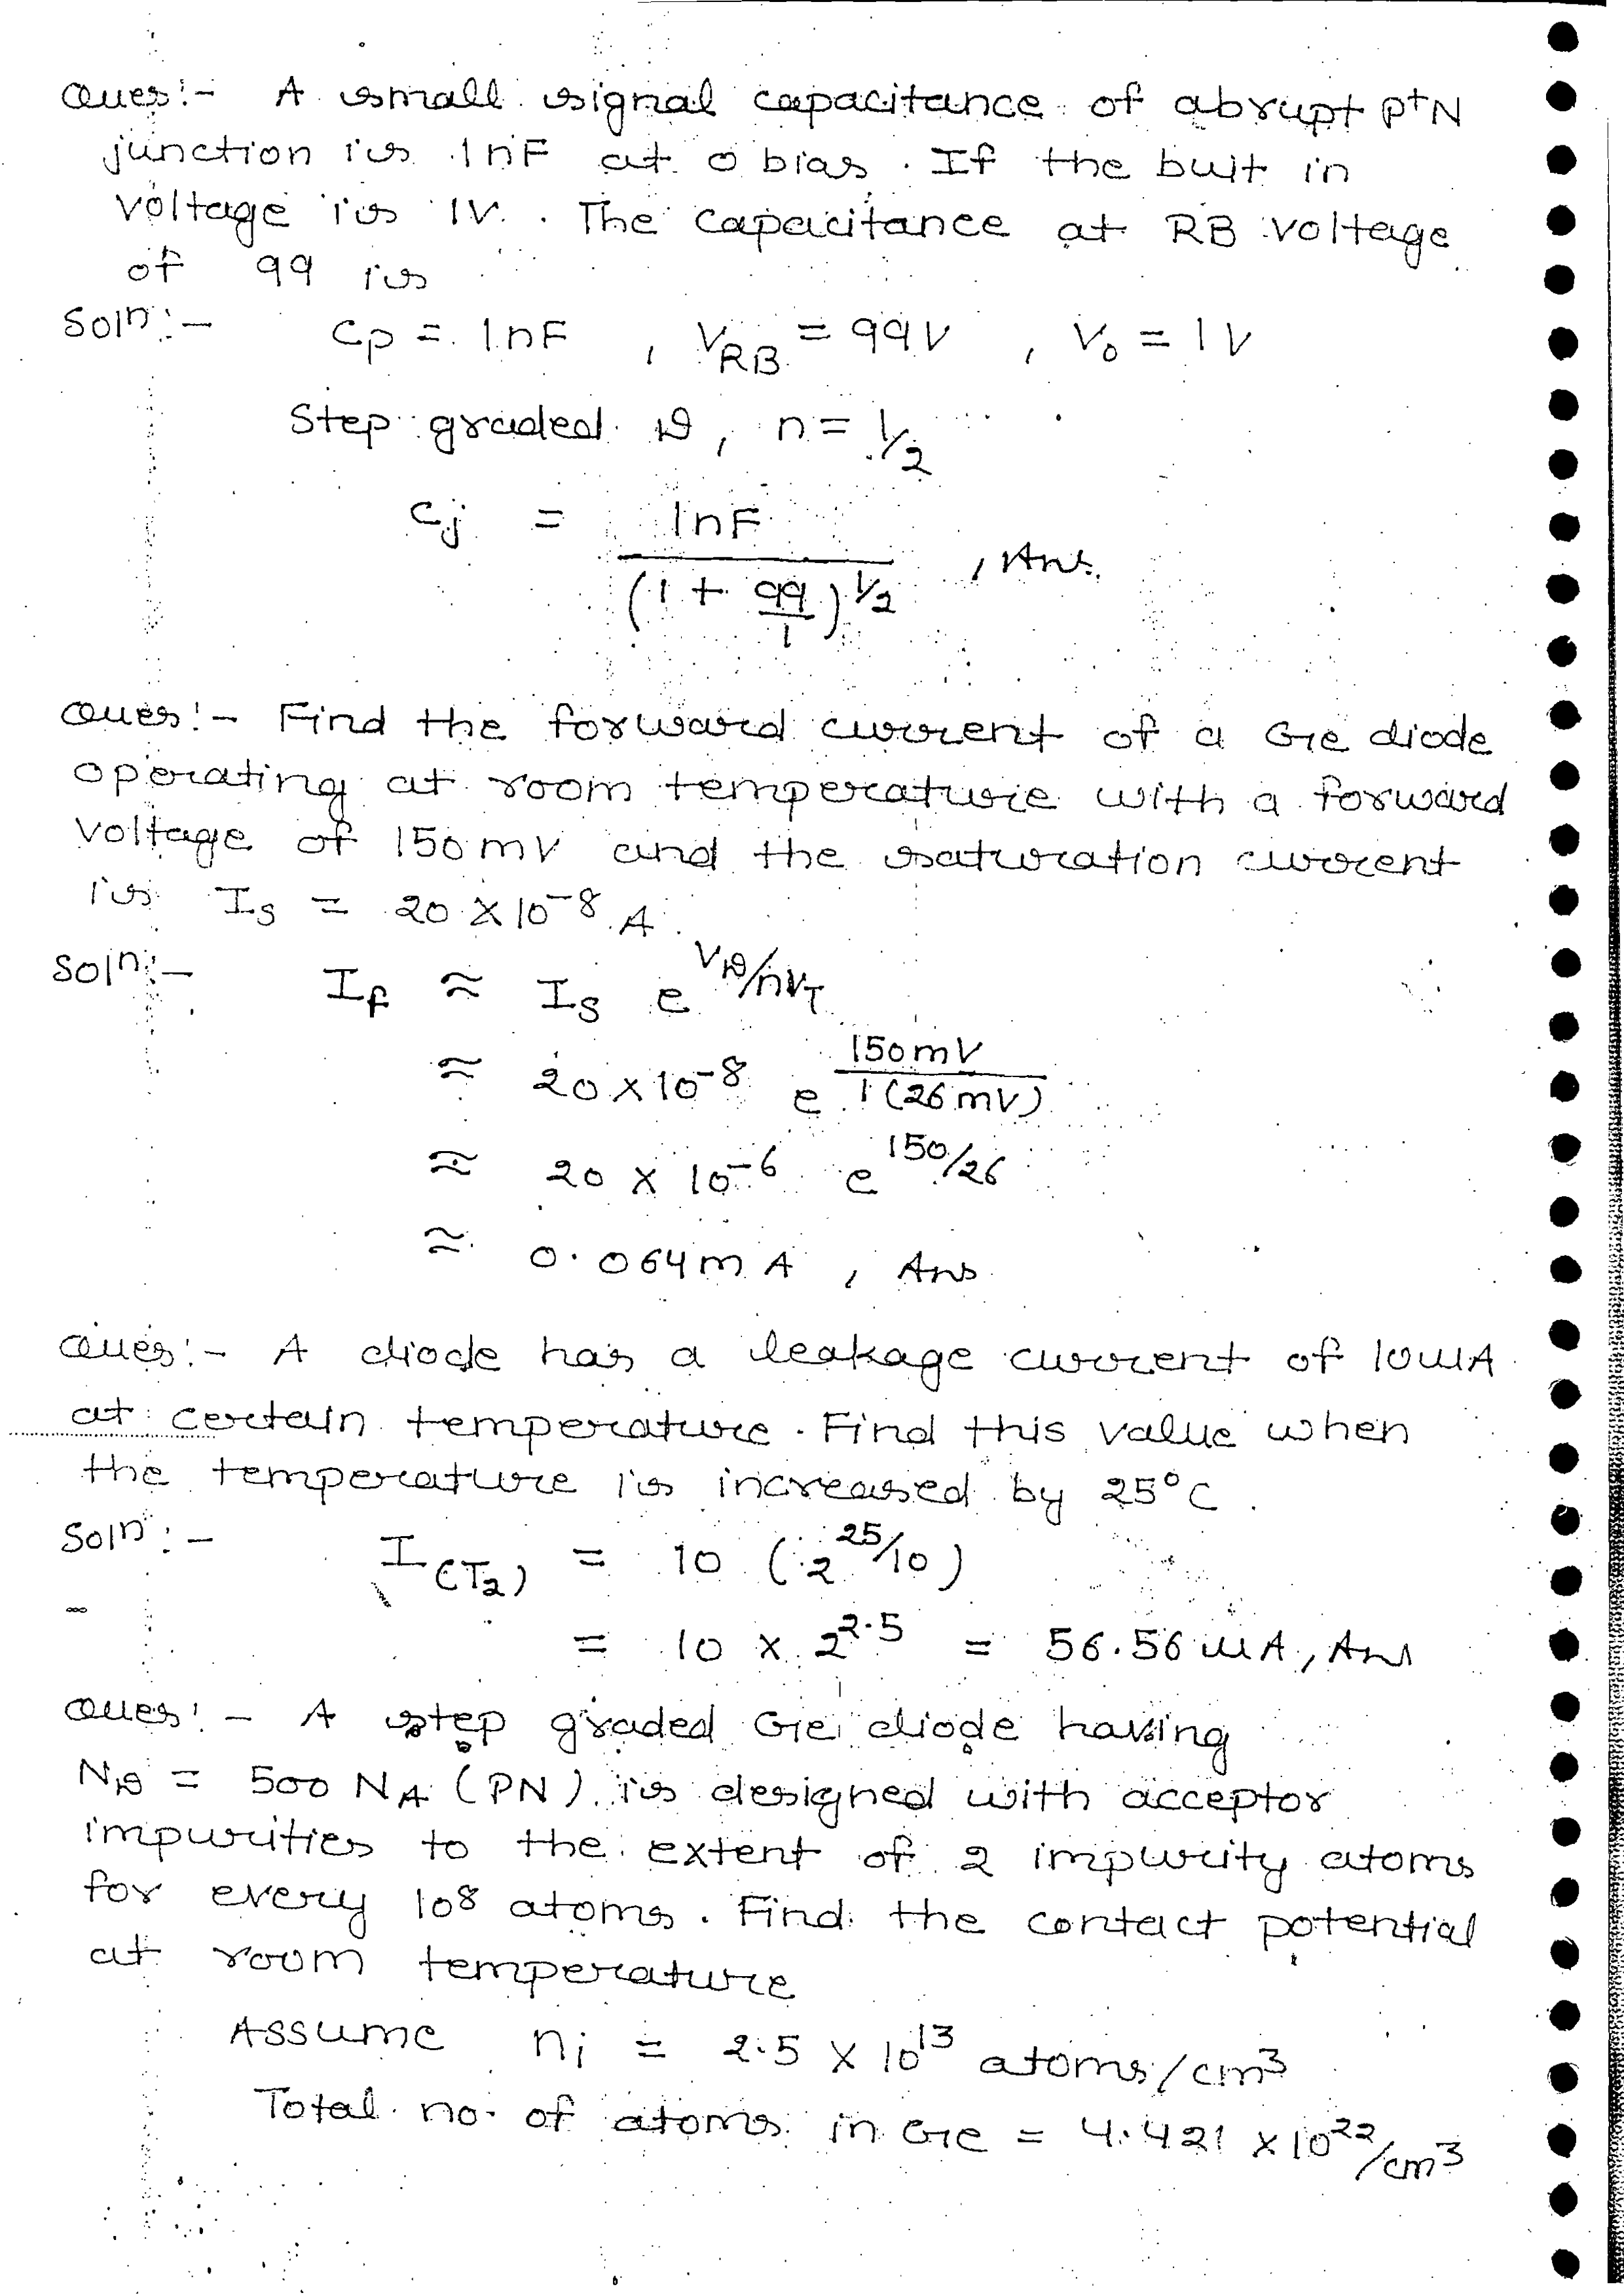 Ques:- A small signal capacitance of abrupt P⁺N
junction is 1nF at 0 bias. If the buit in
voltage is 1V. The capacitance at RB voltage
of 99 is
Solⁿ:- Cp = 1nF , V_RB = 99V , V₀ = 1V
Step graded D, n = 1/2
Cj = 1nF / (1 + 99/1)^1/2 , Ans.
Ques:- Find the forward current of a Ge diode
operating at room temperature with a forward
voltage of 150mV and the saturation current
is I_S = 20 × 10⁻⁸ A.
Solⁿ:- I_f ≈ I_S e^V_D/nV_T
≈ 20 × 10⁻⁸ e^150mV/1(26mV)
≈ 20 × 10⁻⁶ e^150/26
≈ 0.064mA , Ans
Ques:- A diode has a leakage current of 10μA
at certain temperature. Find this value when
the temperature is increased by 25°C.
Solⁿ:- I(T₂) = 10 (2^25/10)
= 10 × 2^2.5 = 56.56 μA, Ans
Ques:- A step graded Ge diode having
N_D = 500 N_A (PN) is designed with acceptor
impurities to the extent of 2 impurity atoms
for every 10⁸ atoms. Find the contact potential
at room temperature
Assume n_i = 2.5 × 10¹³ atoms/cm³
Total no. of atoms in Ge = 4.421 × 10²²/cm³